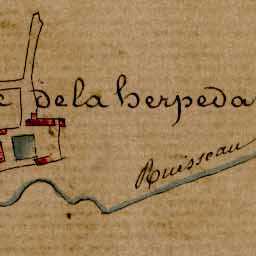 e de la herpeda
Ruisseau